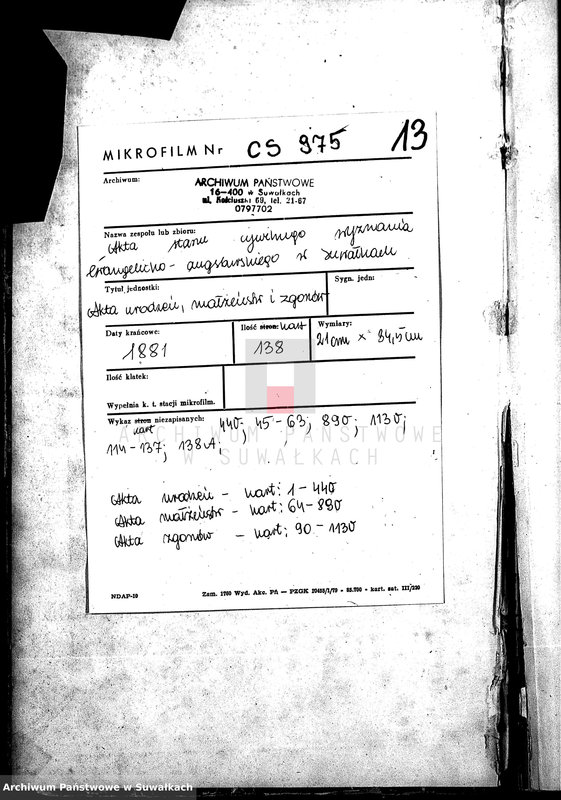 MIKROFILM Nr CS 975 13
Archiwum:
ARCHIWUM PAŃSTWOWE
16-400 w Suwałkach
ul. Kościuszki 69, tel. 21-67
0797702
Nazwa zespołu lub zbioru:
Akta stanu cywilnego wyznania
Ewangelicko-augsburskiego w Suwałkach
Tytuł jednostki:
Sygn. jedn:
Akta urodzeń, małżeństw i zgonów
Daty krańcowe:
Ilość stron: kart
Wymiary:
1881
138
21cm x 34,5cm
Ilość klatek:
Wypełnia k. t. stacji mikrofilm.
Wykaz stron niezapisanych:
kart
44v; 45-63; 89v; 113v;
114-137; 138A;
ARCHIWUM PAŃSTWOWE
W SUWAŁKACH
Akta urodzeń - kart: 1-44v
Akta małżeństw - kart: 64-89v
Akta zgonów - kart: 90-113v
NDAP-19
Zam. 1760 Wyd. Akc. Pń — PZGK
kart. sat. III/220
Archiwum Państwowe w Suwałkach